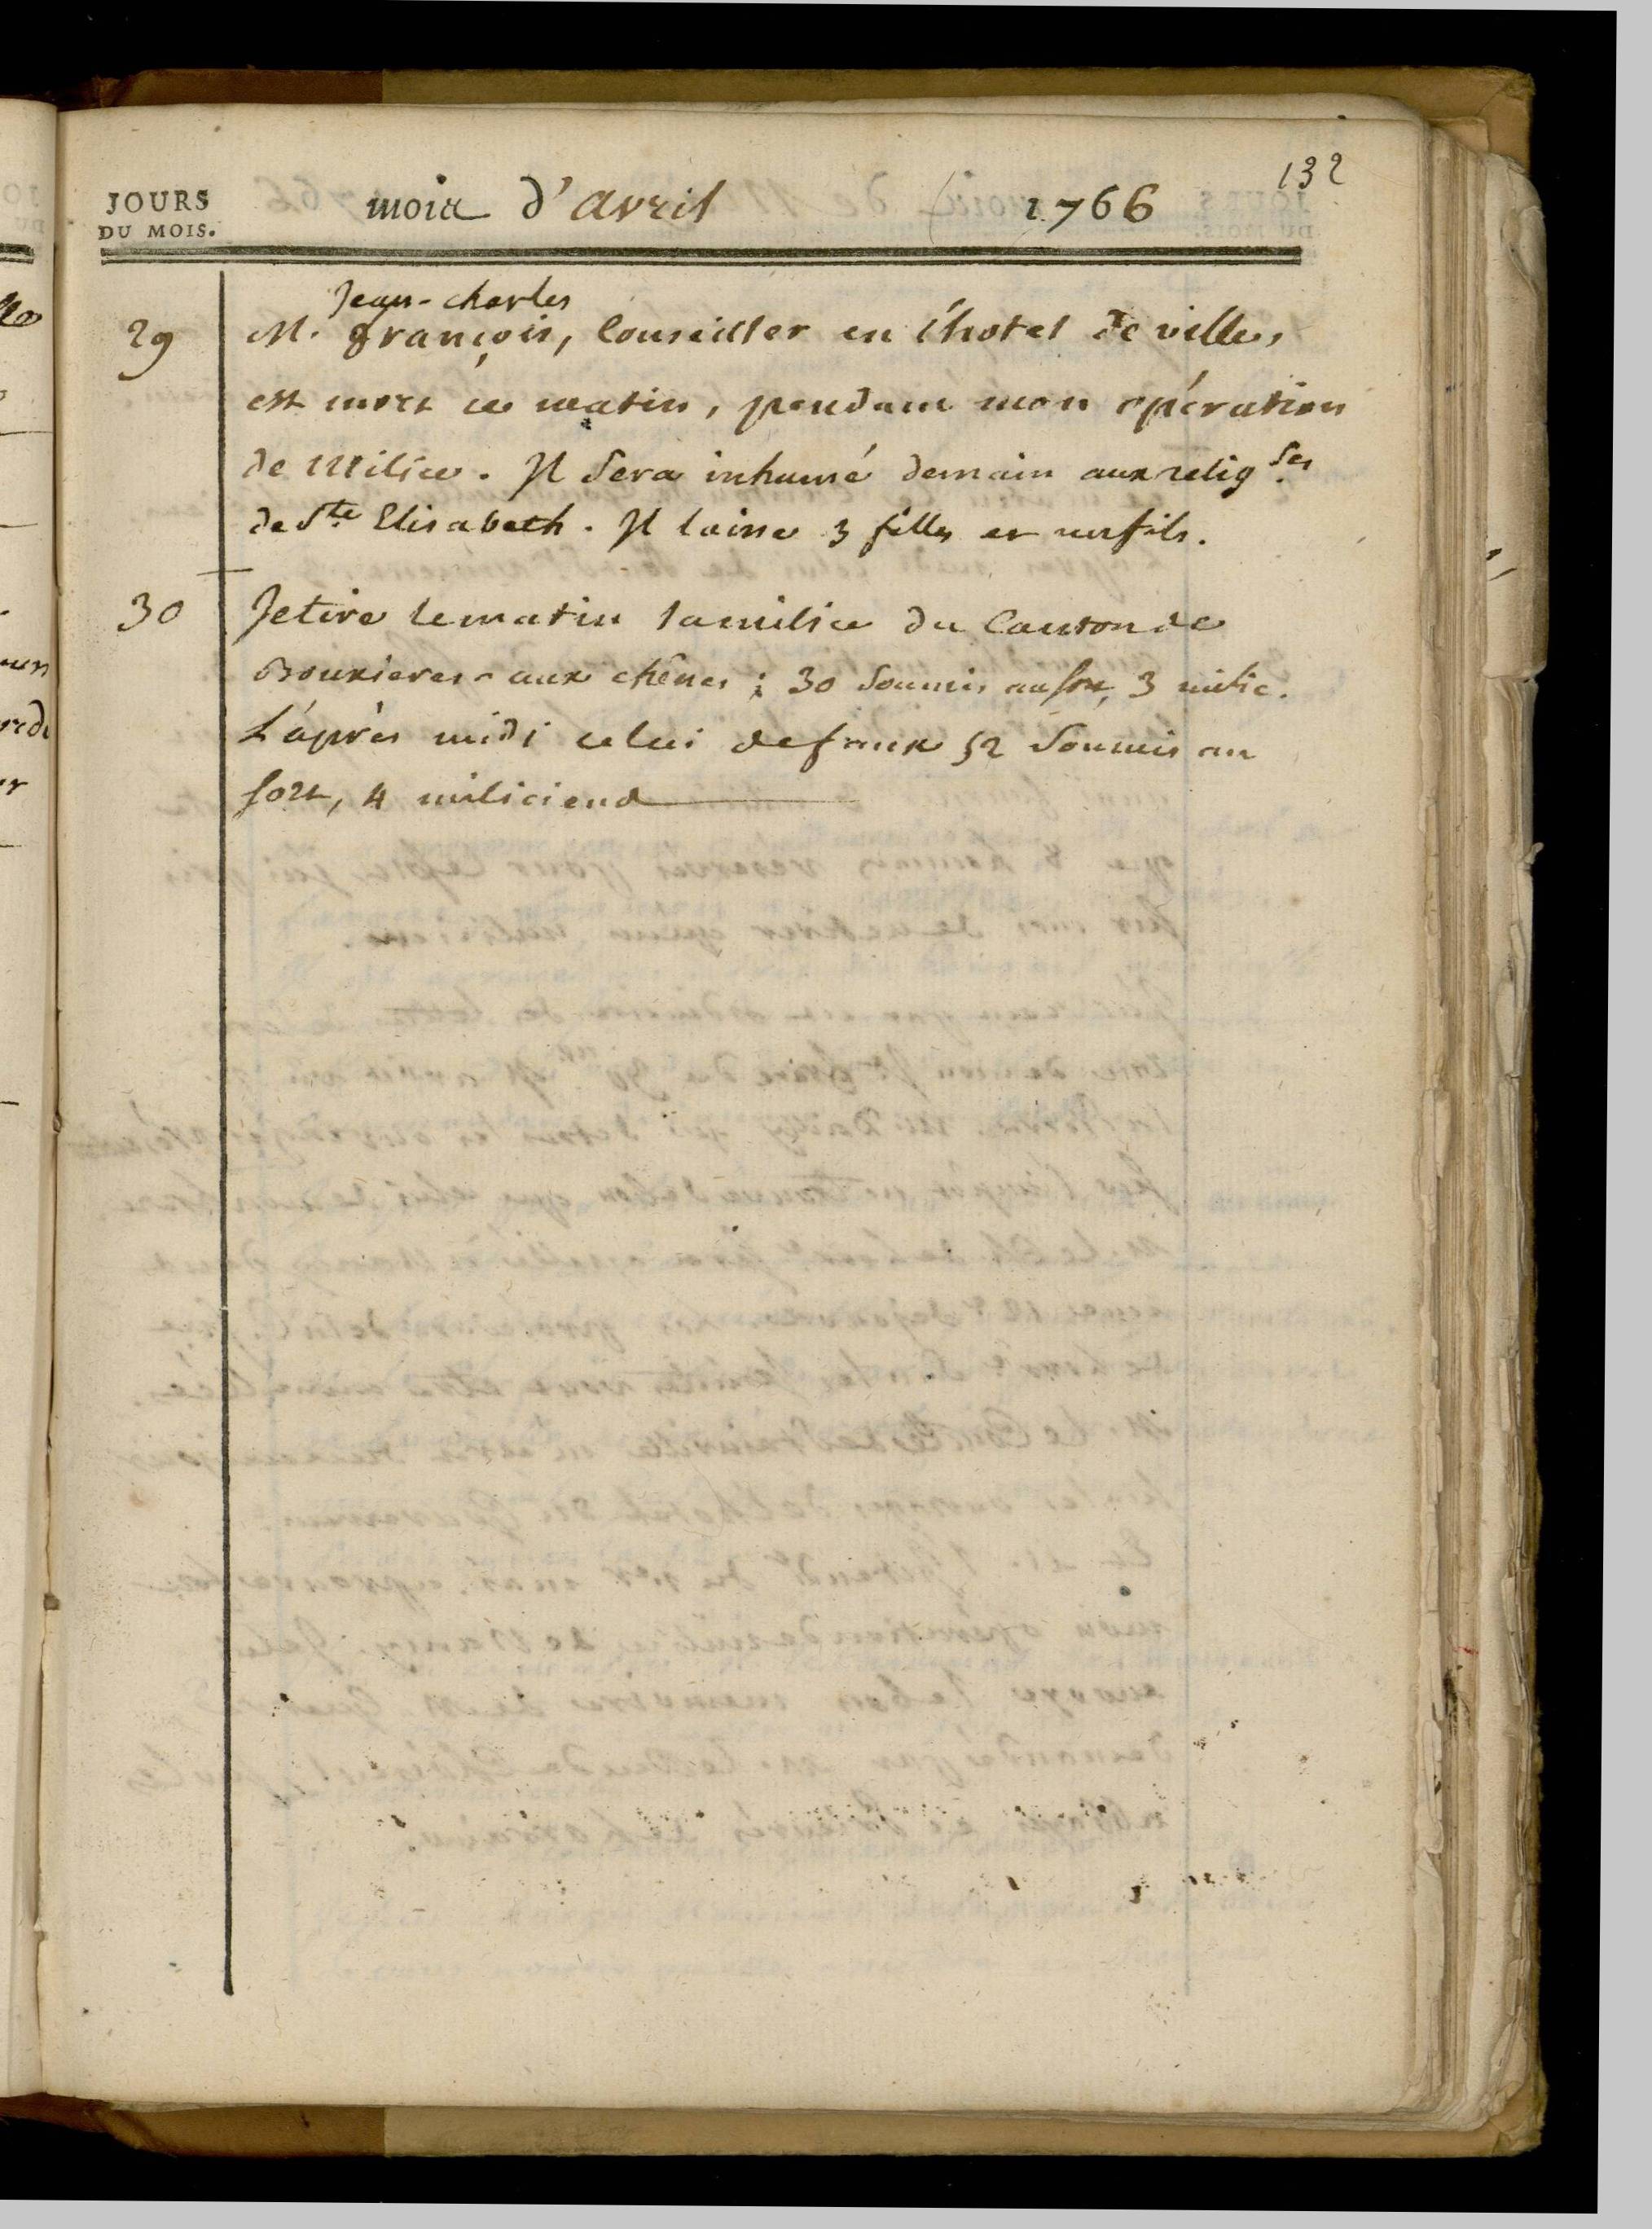 132
JOURS
DU MOIS.
mois d'avril 1766
Jean-charles
29 M. françois, Conseiller en l'hotel de ville,
est mort ce matin, pendant mon opération
de Milice. Il sera inhumé demain aux relig.ses
de Ste Elisabeth. Il laisse 3 filles et un fils.
30 Je tire le matin la milice du Canton de
Bouxieres-aux chênes; 30 soumis au sort, 3 milic.
L'après midi celui de faux 52 soumis au
sort, 4 miliciens